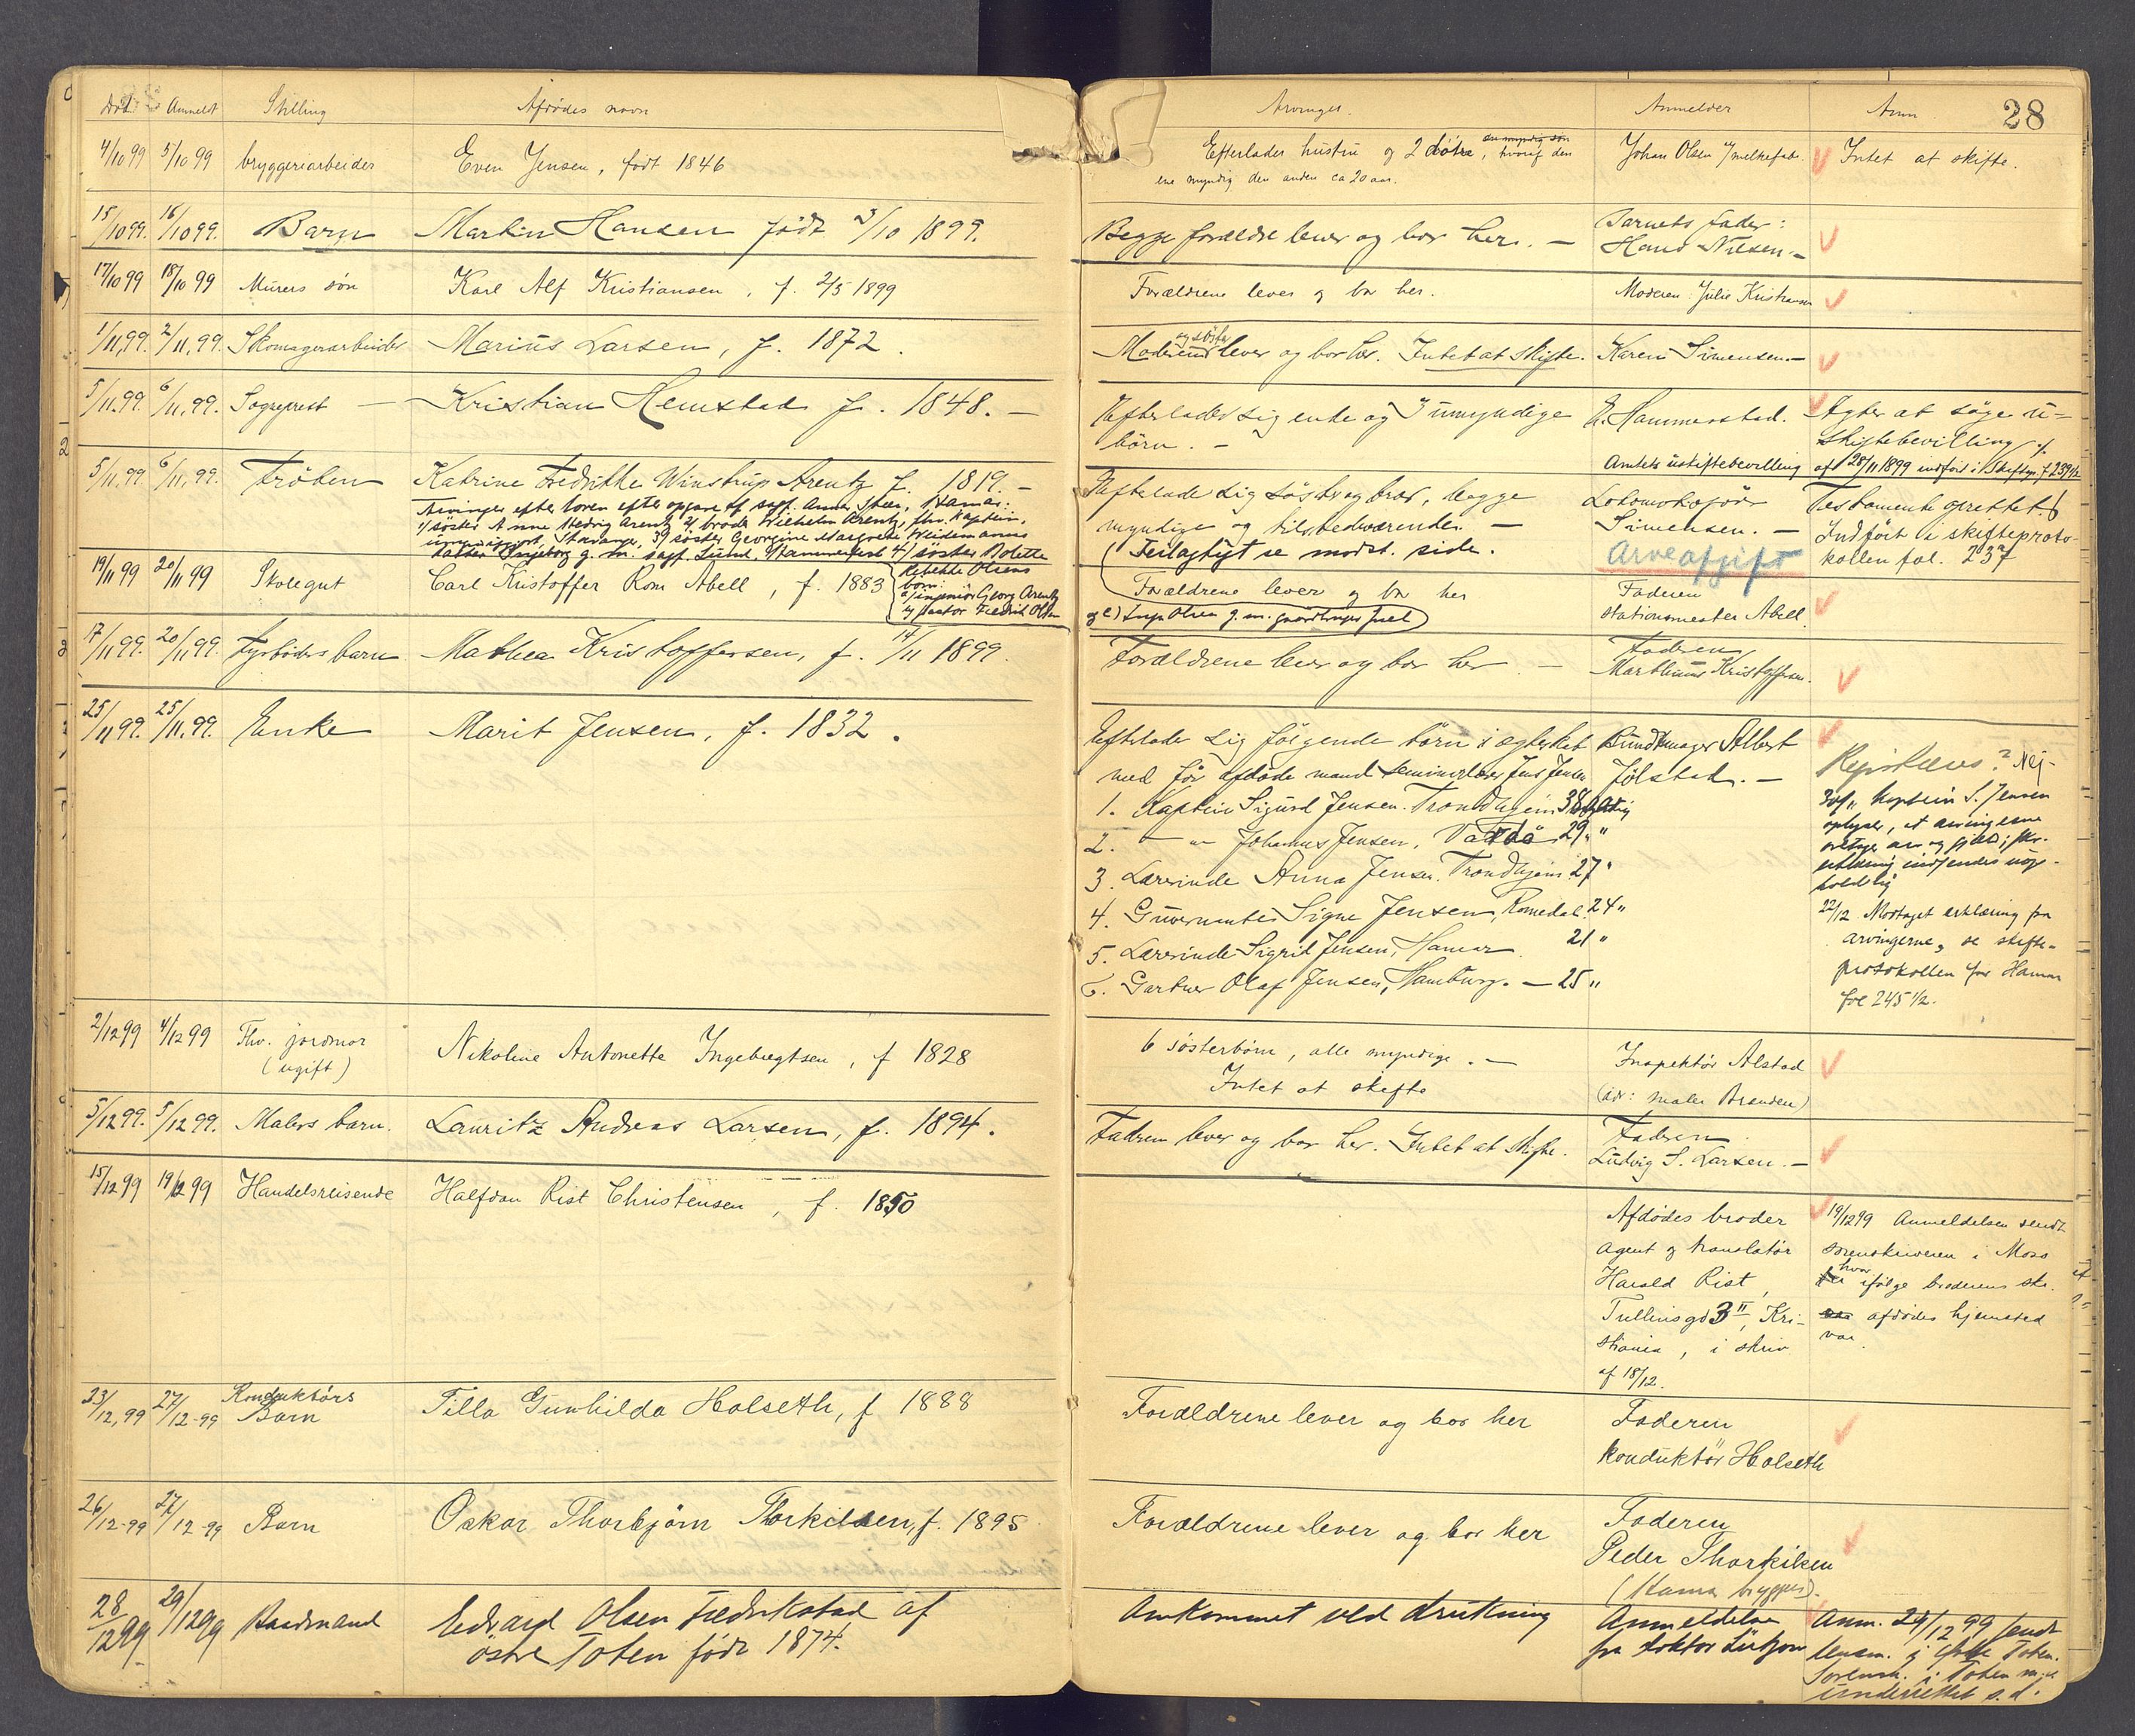 Død Anmeldt Stilling Afdødes navn Arvinger. Anmelder Anm 28
4/10 99 5/10 99 bryggeriarbeider Even Jensen, født 1846
Efterlader hustru og 2 døtre, hvoraf den
ene myndig den anden ca 20 aar.
Johan Olsen
Intet at skifte.
15/10 99. 16/10 99. Barn Martin Hansen født 3/10 1899.
Begge forældre lever og bor her. —
Barnets fader:
Hans Nilsen. —
17/10 99 18/10 99 Murers søn Karl Alf Kristiansen, f. 2/5 1899
Forældrene lever og bor her.
Moderen: Julie Kristiansen
1/11, 99. 2/11, 99. Skomagerarbeider Marius Larsen, f. 1872.
og søster
Moderen lever og bor her. Intet at skifte. Karen Simensen. —
5/11. 99. 6/11. 99. Sogneprest — Kristian Hemstad f. 1848. —
Efterlader sig enke og 3 umyndige
børn. —
E. Hammerstad.
Agter at søge u-
skiftebevilling
Amtets uskiftebevilling af 28/11 1899 indført i Skiftepr. f 239 1/2
5/11. 99. 6/11. 99. Frøken Katrine Fredrikke Winstrup Arentz f. 1819. —
Arvinger efter loven efter opgave af
1/ søster Anne Hedvig Arentz 2/ broder Wilhelm Arentz, fhv. kaptein,
Stavanger, 3/ søster Georgine Margrete Weidemanns
datter Ingeborg g. m. sagf. Lund, Hammerfest 4/ søster Nolette
Rebekke Olsens
børn:
a/ ingeniør Georg Arentz
b/ pastor Fredrik Olsen
Efterlader sig søster og bror, begge
myndige og tilstedeværende. —
Feilagtigt se modst. side.
Lokomotivfører
Simensen. —
Arveafgift
Testamente oprettet.
Indført i skifteproto-
kollen fol. 237
19/11 99 20/11 99 Skolegut Carl Kristoffer Rom Abell, f. 1883
Forældrene lever og bor her
Faderen
stationsmester Abell.
17/11 99. 20/11 99. Fyrbøders barn Mathea Kristoffersen, f. 14/11 1899.
Forældrene lever og bor her —
Faderen
Marthinus Kristoffersen.
25/11 99. 25/11. 99. Enke Marit Jensen, f. 1832.
Efterlader sig følgende børn i ægteskab
med før afdøde mand seminarlærer Jens Jensen
1. Kaptein Sigurd Jensen. Trondhjem 38 myndig
2. — " — Johannes Jensen, Vardø 29 "
3. Lærerinde Anna Jensen. Trondhjem. 27 "
4. Guvernante Signe Jensen, Romedal. 24 "
5. Lærerinde Sigrid Jensen, Hamar. 21 "
6. Gartner Olaf Jensen, Hamburg. — 25 "
Bundtmager Albert
Jølstad. —
Registreres? Nej —
30/11 Kaptein S. Jensen
oplyser, at arvingerne
overtager arv og gjæld; skr.
erklæring indsendes
22/12 Modtaget erklæring fra
arvingerne, se skifte-
protokollen for Hamar
fol 245 1/2.
2/12 99 4/12 99 Fhv. jordmor
(ugift)
Nikoline Antonette Ingebregtsen, f 1828
6 søsterbørn, alle myndige. —
Intet at skifte
Inspektør Alstad
(adr: maler Brenden)
5/12 99. 5/12 99. Malers barn. Lauritz Andreas Larsen, f. 1894.
Faderen lever og bor her. Intet at skifte.
Faderen
Ludvig S. Larsen. —
15/12 99 19/12 99 Handelsreisende Halfdan Rist Christensen, f. 1850
Afdødes broder
agent og translatør
Harald Rist,
Tullinsgd 3 II, Kri-
stiania, i skriv
af 18/12.
19/12 99 Anmeldelsen sendt
sorenskriveren i Moss
hvor ifølge broderens skr.
afdødes hjemsted
var.
23/12, 99 27/12 - 99 Konduktørs
Barn
Tilla Gunhilda Holseth, f 1888
Forældrene lever og bor her
Faderen
konduktør Holseth
26/12 - 99 27/12 - 99 Barn Oskar Thorbjørn Thorkildsen, f. 1895
Forældrene lever og bor her
Faderen
Peder Thorkilsen
(Hamar bryggeri).
28/12 99 29/12 99 Baadmand Edvard Olsen Fredrikstad af
østre Toten født 1874.
Omkommet ved drukning
Anmeldelse
fra doktor Lützow
Anm. 29/12 99 sendt
lensm. i østre Toten.
Sorensk. i Toten
underrettet s. d.